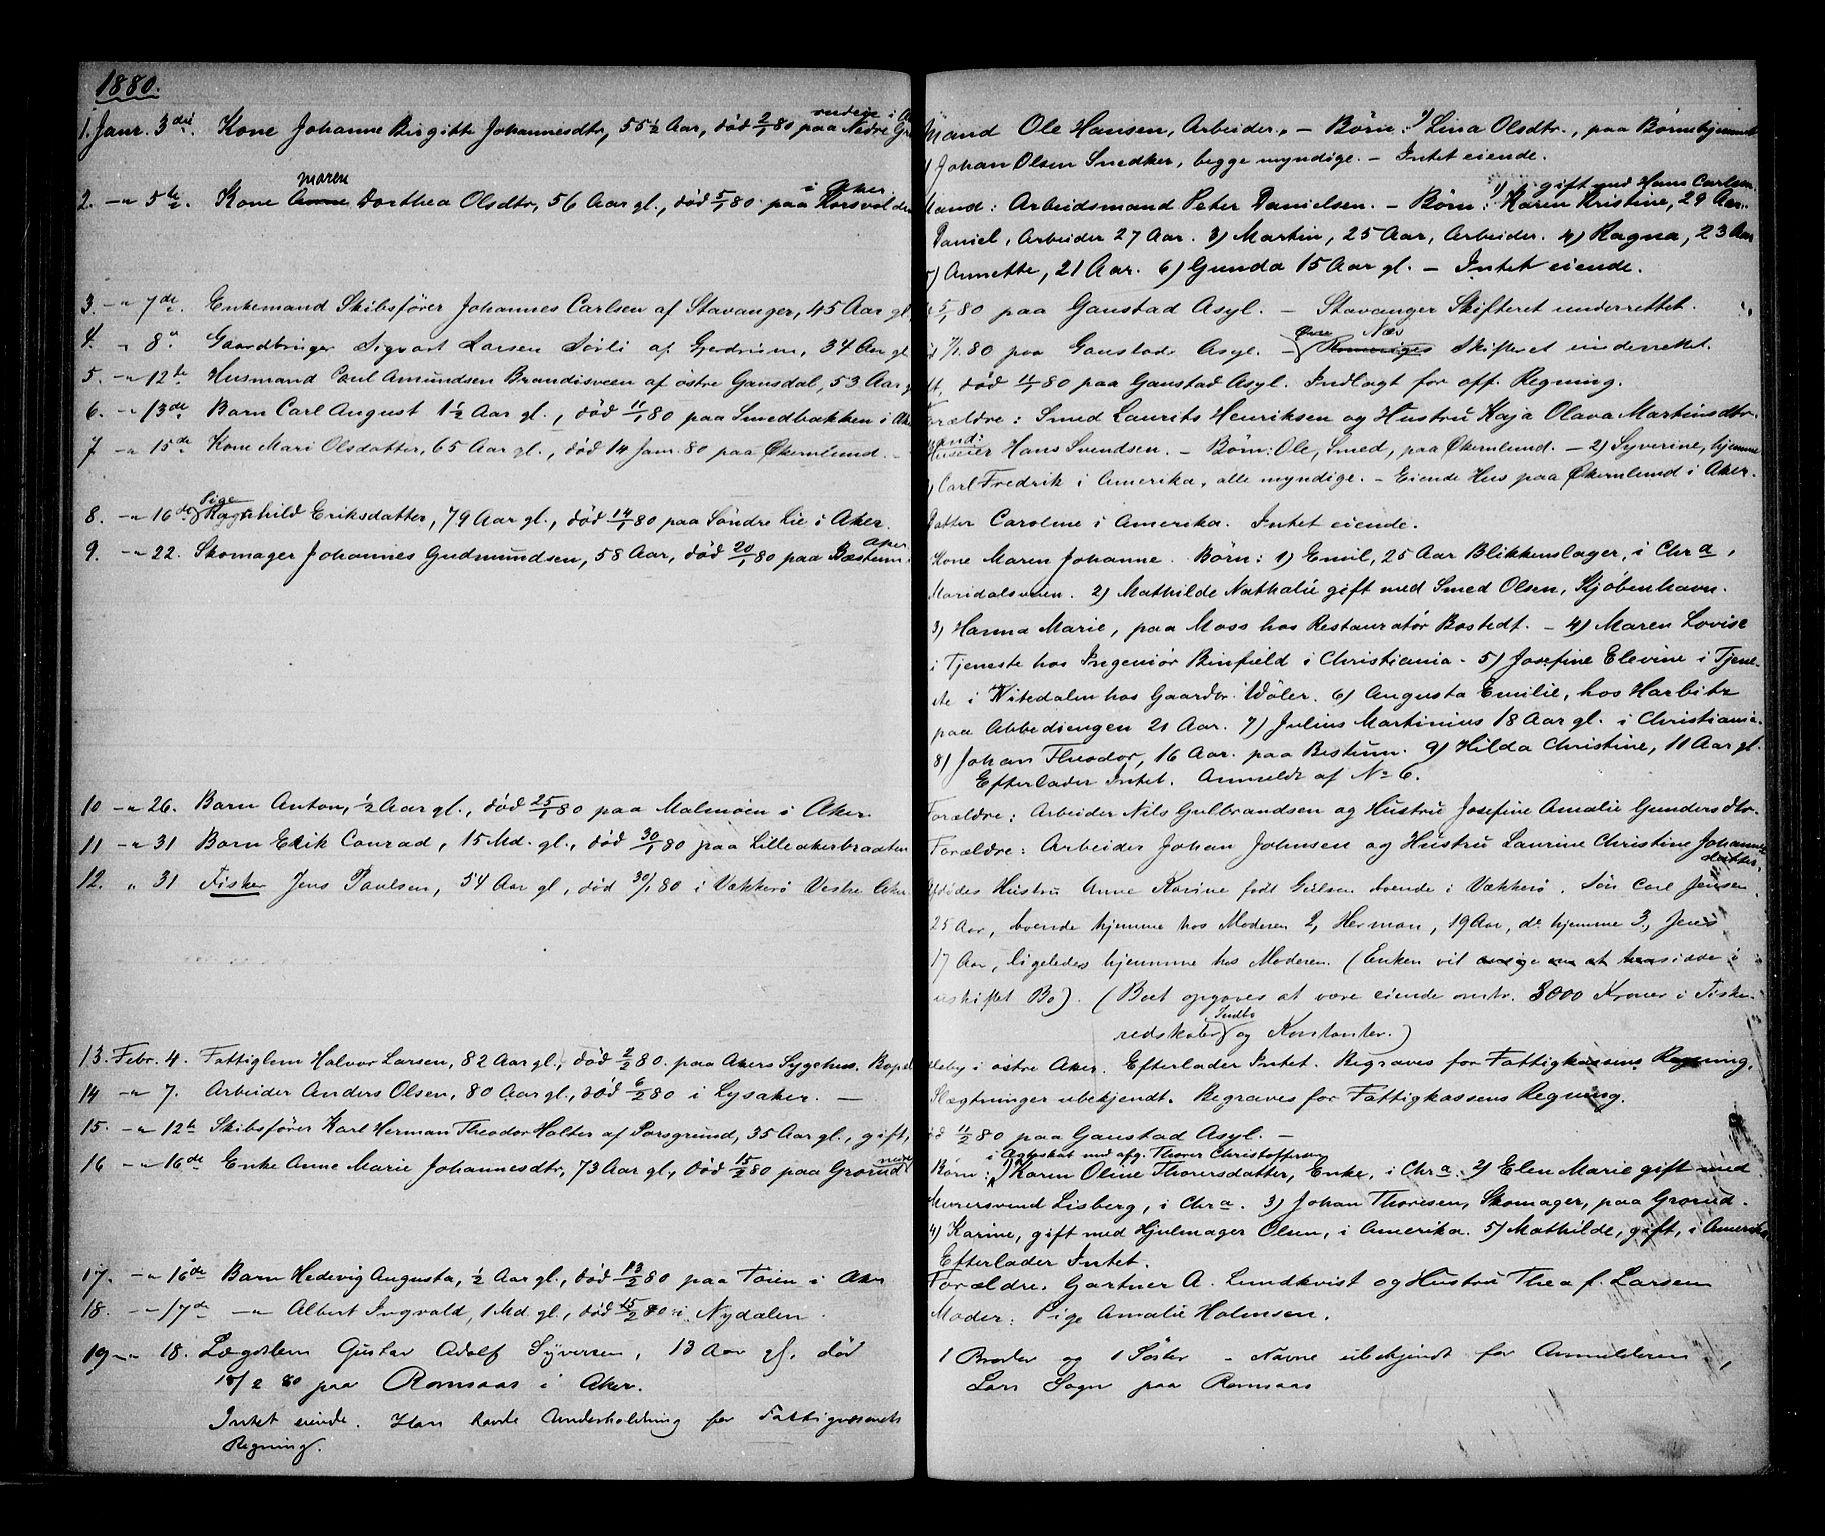 1880.
1. Janr. 3die. Kone Johanne Birgitte Johannesdtr, 55 1/2 Aar, död 2/1 80 paa Nedre
2. -"- 5te. Kone Maren Dorthea Olsdtr, 56 Aar gl., död 5/1 80 paa Korsvolden i Aker.
3. -"- 7de. Enkemand Skibsförer Johannes Carlsen af Stavanger, 45 Aar gl.
4. " 8" Gaardbruger Sigvart Larsen Sörli af Gjerdrum, 34 Aar gl
5. -"- 12te Husmand Paul Amundsen Brandisveen af östre Gausdal, 53 Aar
6. -"- 13de Barn Carl August 1 1/2 Aar gl., död 11/1 80 paa Smedbakken i Aker
7 -"- 15de Kone Mari Olsdatter, 65 Aar gl., död 14 Jan. 80 paa Økernlund. -
8. -"- 16de Pige Ragnhild Eriksdatter, 79 Aar gl., död 14/1 80 paa Söndre Lie i Aker.
9. -"- 22. Skomager Johannes Gudmundsen, 58 Aar, död 20/1 80 paa Bæstum Aker
10 -"- 26. Barn Anton, 1/2 Aar gl., död 25/1 80 paa Malmöen i Aker
11 -"- 31 Barn Erik Conrad, 15 Md. gl., död 30/1 80 paa Lilleakerbraaten
12. " 31 Fisker Jens Paulsen, 54 Aar gl, död 30/1 80 i Vækkerö Vestre Aker
13. Febr. 4. Fattiglem Halvor Larsen, 82 Aar gl., död 2/2 80. paa Akers Sygehus. Bopel
14 -"- 7. Arbeider Anders Olsen, 80 Aar gl., död 6/2 80 i Lysaker. -
15. -"- 12te Skibsförer Karl Herman Theodor Halter af Porsgrund, 35 Aar gl., gift,
16 -"- 16de Enke Anne Marie Johannesdtr, 73 Aar gl., död 15/2 80 paa Grorud nedre
17. -"- 16de Barn Hedevig Augusta, 1/2 Aar gl., död 13/2 80 paa Töien i Aker
18. -"- 17de -"- Albert Ingvald, 1 Md. gl., död 15/2 80 i Nydalen.
19 -"- 18. Lægdslem Gustav Adolf Syversen, 13 Aar gl. död
15/2 80 paa Romsaas i Aker.
Intet eiende. Han havde Underholdning for Fattigvæsenets
Regning.
Mand Ole Hansen, Arbeider. - Börn: 1) Lina Olsdtr., paa Börnehjemmet
2) Johan Olsen Snedker, begge myndige. - Intet eiende.
Mand: Arbeidsmand Peter Danielsen. - Börn: 1) Karen Kristine, 29 Aar. gift med Hans Carlsen.
Daniel, Arbeider 27 Aar. 3) Martin, 25 Aar, Arbeider. 4) Ragna, 23 Aar
5) Annette, 21 Aar. 6) Gunda 15 Aar gl. - Intet eiende.
5/1 80 paa Gaustad Asyl. - Stavanger Skifteret underrettet.
7/1 80 paa Gaustad Asyl. - Övre Romeriges Skifteret underrettet.
gift. död 11/1 80 paa Gaustad Asyl. Indlagt for off. Regning.
Forældre: Smed Laurits Henriksen og Hustru Kaja Olava Martinsdtr.
Mand: Huseier Hans Svendsen. - Börn: Ole, Smed, paa Økernlund. - 2) Syverine, hjemme
3) Carl Fredrik i Amerika, alle myndige. - Eiende Hus paa Økernlund i Aker.
Datter Caroline i Amerika. Intet eiende.
Kone Maren Johanne. Börn: 1) Emil, 25 Aar Blikkenslager, i Chra,
Maridalsveien. 2) Mathilde Nathalie gift med Smed Olsen, Kjöbenhavn.
3) Hanna Marie, paa Moss hos Restauratör Bostedt. - 4) Maren Lovise
i Tjeneste hos Ingeniör Binfield i Christiania. 5) Josefine Elevine i Tjene-
ste i Nitedalen hos Gaardbr. Wöler. 6) Augusta Emilie, hos Harbitz
paa Abbediengen 21 Aar. 7) Julius Martinius 18 Aar gl. i Christiania.
8) Johan Theodor, 16 Aar. paa Bestum. 9) Hilda Christine, 11 Aar gl.
Efterlader Intet. Anmeldt af No 6.
Forældre: Arbeider Nils Gulbrandsen og Hustru Josefine Amalie Gundersdtr.
Forældre: Arbeider Johan Johnsen og Hustru Laurine Christine Johannesdatter.
Afdödes Hustru Anne Karine född boende i Vækkerö. Sön Carl Jensen
25 Aar, boende hjemme hos Moderen 2, Herman, 19 Aar, do hjemme 3, Jens
17 Aar, ligeledes hjemme hos Moderen. (Enken vil sidde i
uskiftet Bo). (Boet opgaves at være eiende omtr. 3000 Kroner i Fiske-
redskaber, Indbo og Kontanter.)
i östre Aker. Efterlader Intet. Begraves for Fattigkassens Regning.
Slægtninger ubekjendt. Begraves for Fattigkassens Regning.
död 11/2 80 paa Gaustad Asyl. -
i Ægteskab med afg. Thorer Christoffersen
Börn: 1) Karen Oline Thorersdatter, Enke, i Chra. 2) Elen Marie gift med
Murersvend Lisberg, i Chra. 3) Johan Thoresen, Skomager, paa Grorud.
4) Karine, gift med Hjulmager Olsen, i Amerika. 5) Mathilde, gift, i Amerika
Efterlader Intet.
Forældre. Gartner A. Lundkvist og Hustru Thea f. Larsen
Moder: Pige Amalie Holmsen.
1 Broder og 1 Söster - Navne ubekjendt for Anmelderen,
Lars Sogn paa Romsaas